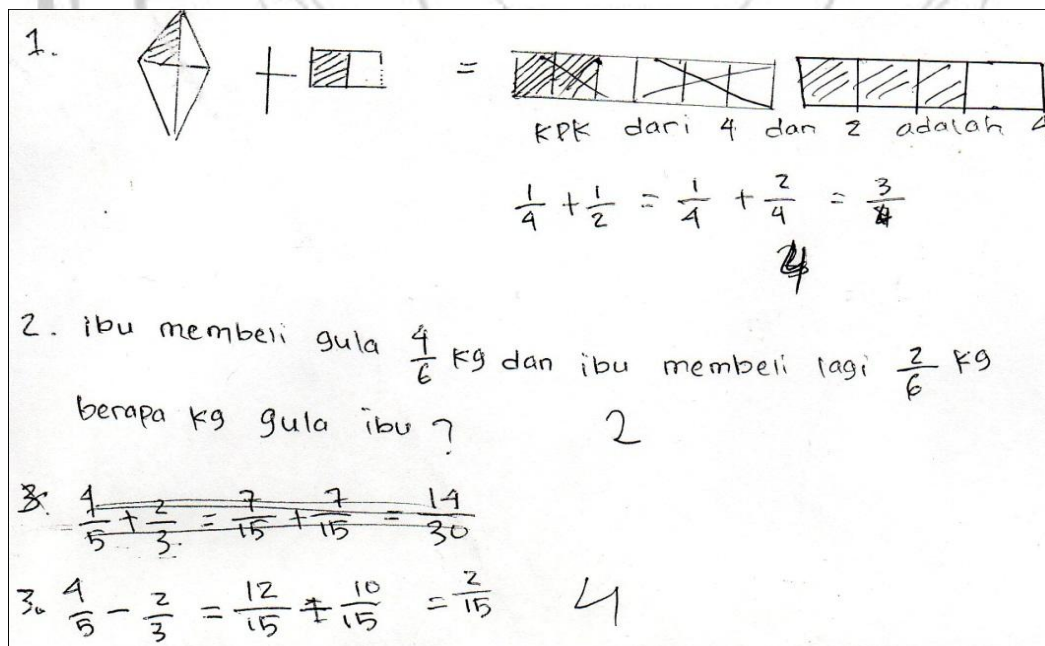 1. + =
KPK dari 4 dan 2 adalah 4
1/4 + 1/2 = 1/4 + 2/4 = 3/4
4
2. ibu membeli gula 4/6 kg dan ibu membeli lagi 2/6 kg
berapa kg gula ibu ?
2
3. 4/5 + 2/3 = 7/15 + 7/15 = 14/30
3. 4/5 - 2/3 = 12/15 - 10/15 = 2/15
4